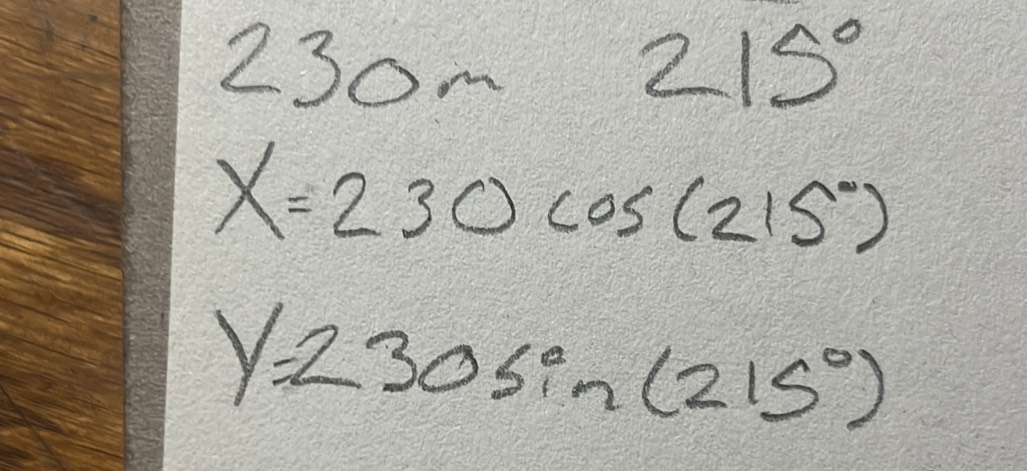 230m 215°
X=230 cos(215°)
Y=230 sin(215°)